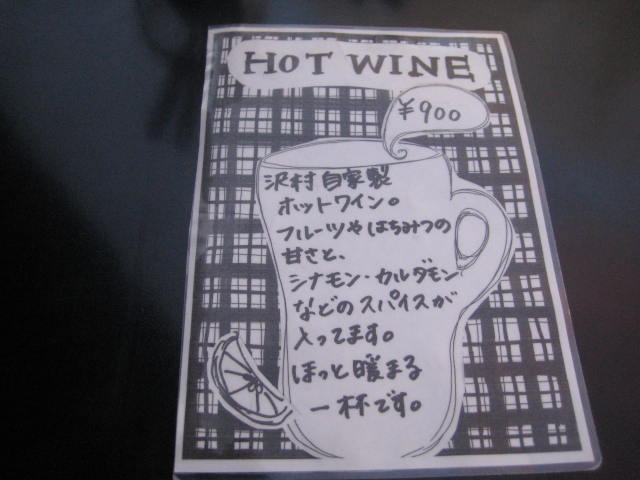 HOT WINE
¥900
沢村自家製
ホットワイン。
フルーツや はちみつの
甘さと、
シナモン・カルダモン
などのスパイスが
入ってます。
ほっと暖まる
一杯です。